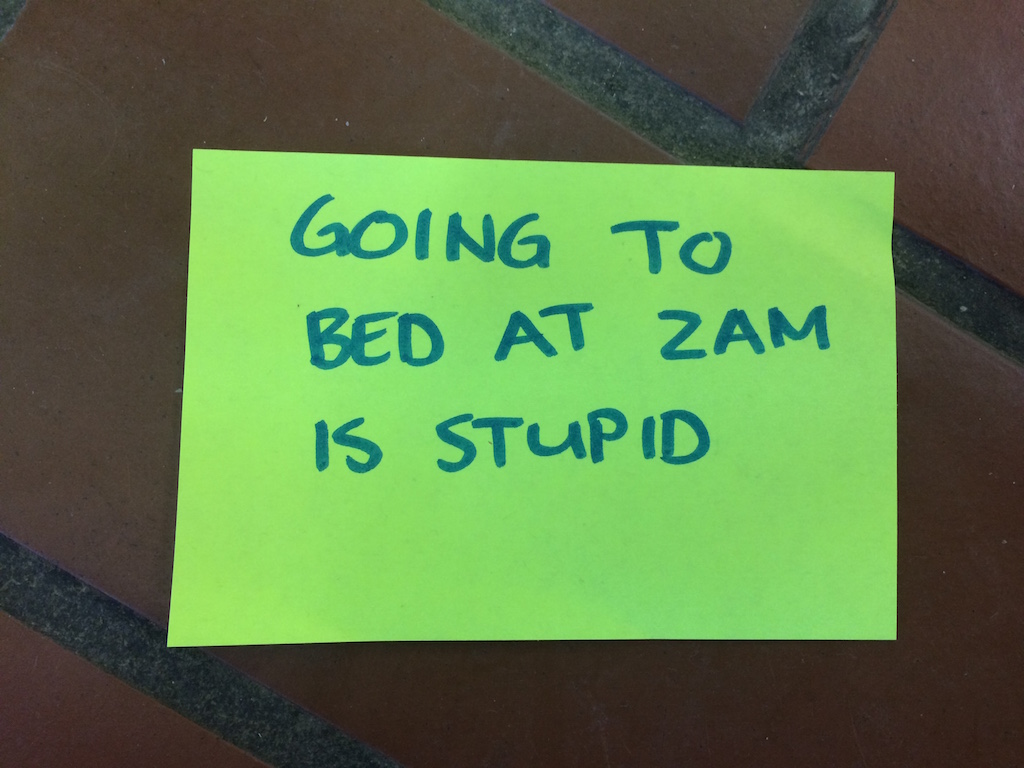 GOING TO
BED AT 2AM
IS STUPID